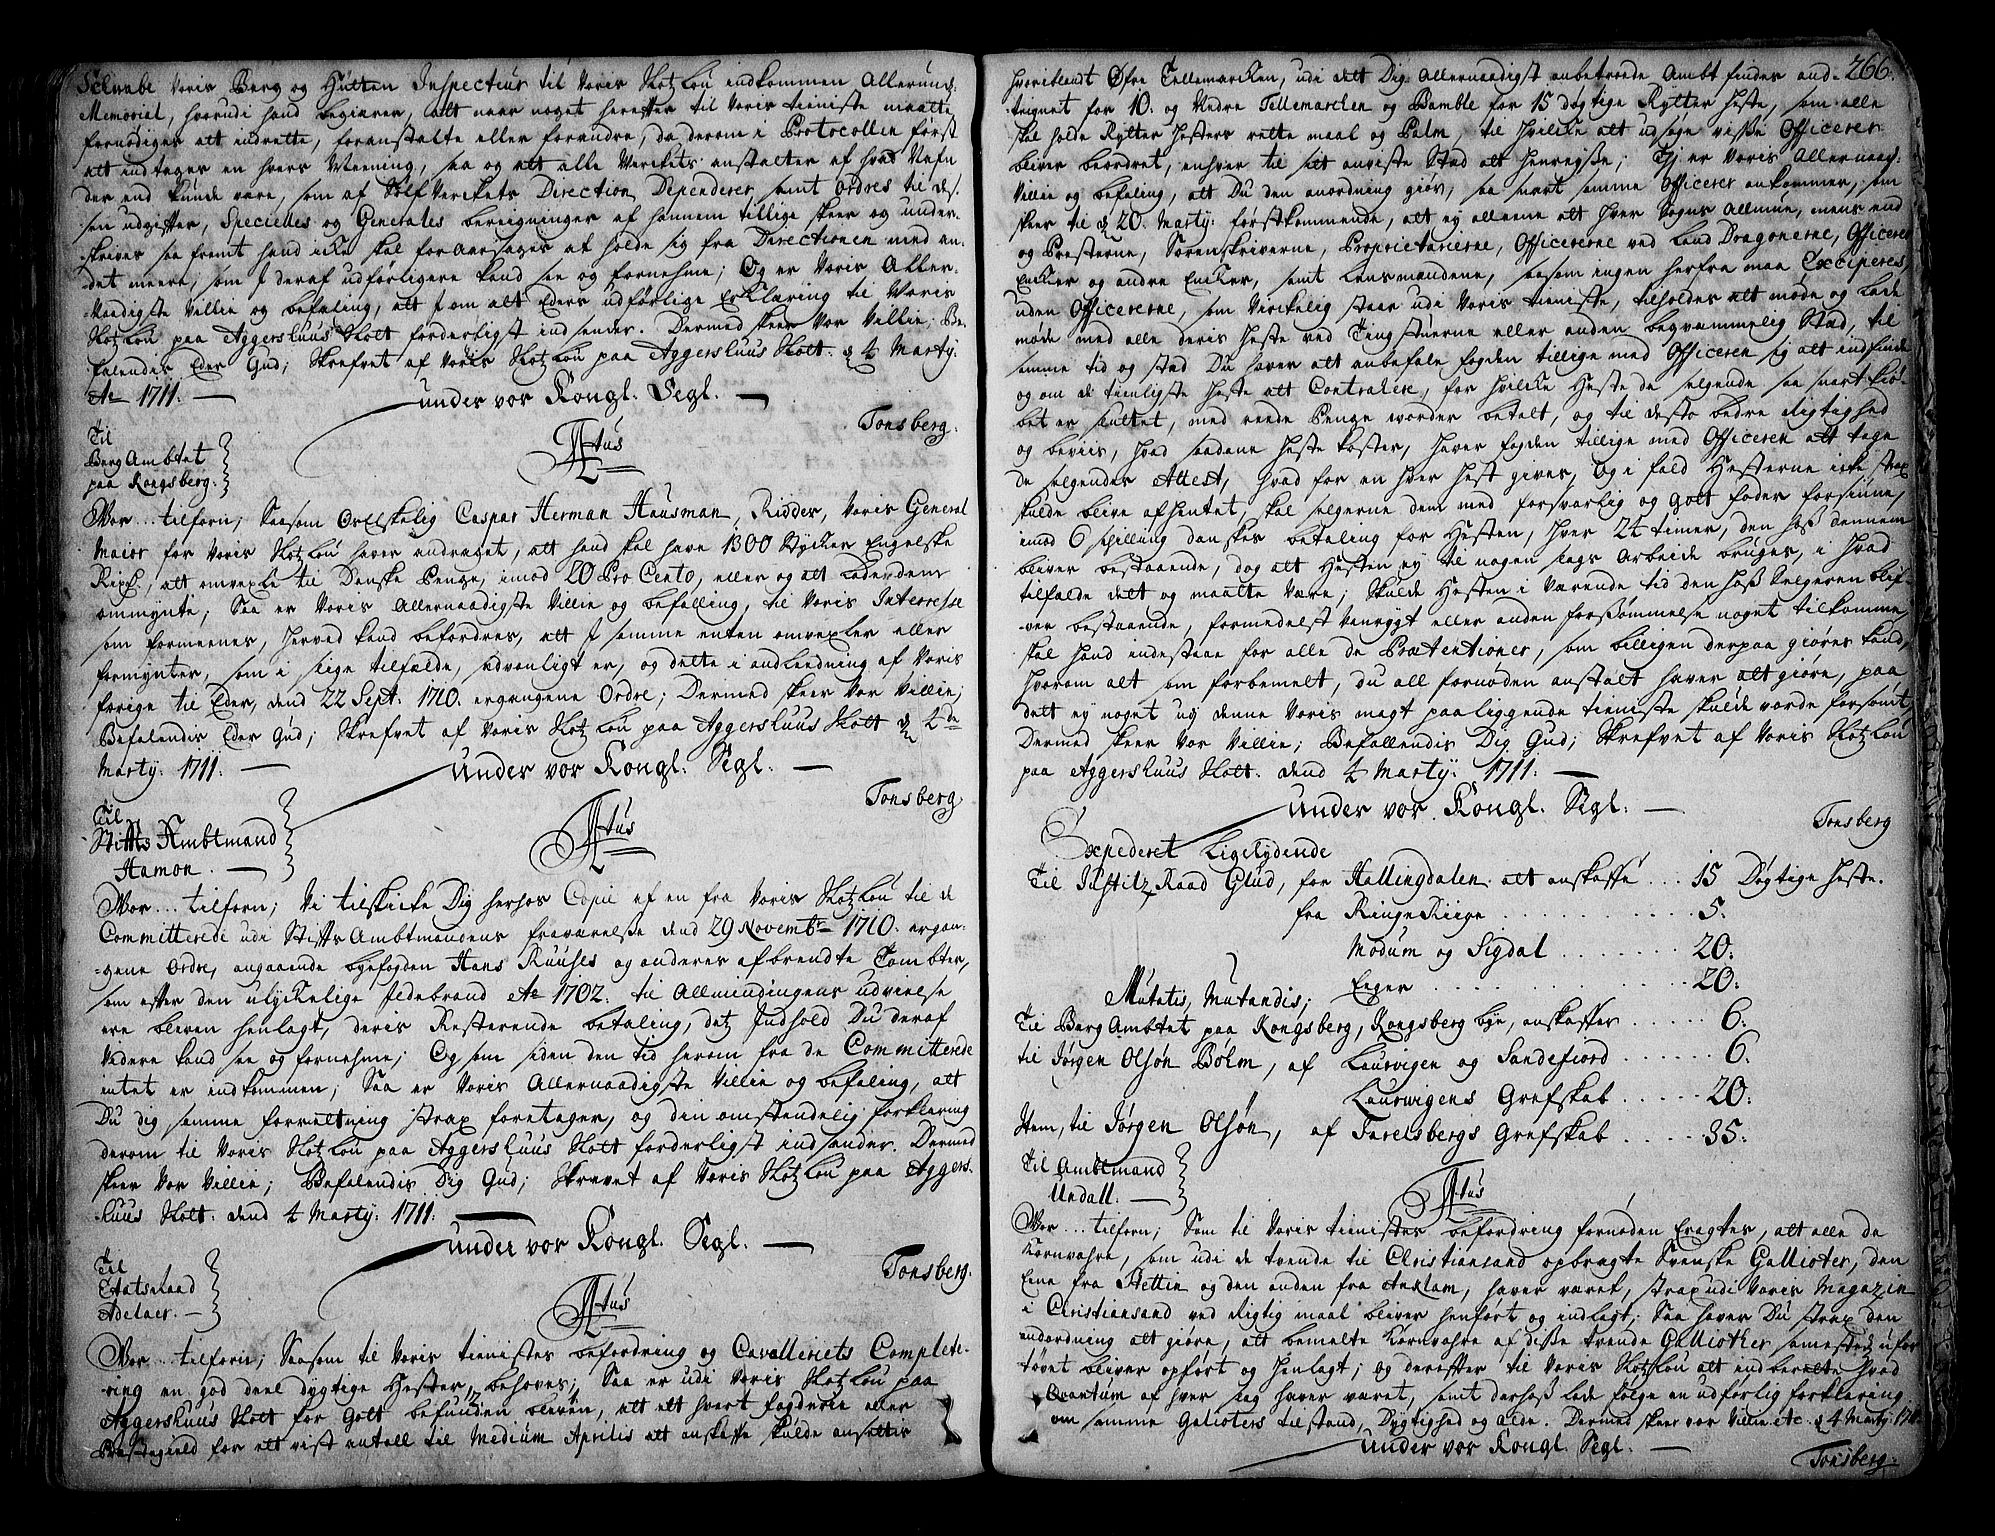 Schwabe Voris Berg og Hütten Inspecteur til Voris Slotz Lou indkommen Allerund:
Memorial, hvorudi hand begiærer, alt naar noget herefter til Voris tieniste maatte
fornødiges att indrette, foranstalte eller forandre, da derom i Protocollen først
att indtages en hvers Meening, saa og att alle Verkets anstalter af hvad Nafn
der end kunde være, som af Sølf Verkets Direction Dependerer, samt Ordres til des:
sen udgifter, Specielles og Generales bereigninger af hannem tillige skeer og under-
skrives saa fremt hand icke skal foraarsages at holde sig fra Directionen med an-
det meere, som I deraf udførligere kand see og fornehme; Og er Voris Aller-
naadigste Villie og befaling, att I om alt Eders udførlige Erklæring til Voris
Slotz Lou paa Aggershuus Slott forderligst indsender. Dermed skeer Vor Villie, Be-
falendes Eder Gud; Skrefvet af Voris Slotz Lou paa Aggershuus Slott. d 4 Martij.
Ao 1711. —
under vor Kongl. Segl. —
Tonsberg.
Til
Berg Ambtet
paa Kongsberg.
Vor... tilforn; Saasom Os Elskelig Caspar Herman Hausman, Ridder, Voris General
Maior for Voris Slotz Lou haver andraget, att hand skal have 1300 Stycker Engelske
Rixd., att omvexle til Danske Penge, imod 20 Pro Cento, eller og att lade dem
ommynte; Saa er Voris Allernaadigste Villie og befalling, til Voris Interesse
som formeenes, herved kand befordres, att I samme enten omvexler eller
formynter, som i slige tilfælde, sædvanligt er, og dette i anledning af Voris
forige til Eder, dend 22 Sept. 1710. ergangene Ordre; Dermed skeer Vor Villie;
Befalendes Eder Gud; Skrefvet af Voris Slotz Lou paa Aggershuus Slott d 2de
Martij. 1711. —
under vor Kongl. Segl. —
Tonsberg.
Til
Stifts Ambtmand
Hamon. —
Vor... tilforn; Vi tilskicke Dig herhos Copie af en fra Voris Slotz Lou til de
Committerede udi Stifts Ambtmandens fraværelse dend 29 Novembr 1710. ergan-
gene Ordre, angaaende byefogden Hans Ruuses og anderes afbrendte Tombter,
som efter den ulyckelige Jldebrand Ao 1702. til Allmindingens udviedelse
ere bleven henlagt, deris Resterende betaling, detz Indhold Du deraf
videre kand see og fornehme; Og som siden den tid herom fra de Committerede
intet er indkommen; Saa er Voris Allernaadigste Villie og befaling, att
Du dig samme forretning strax foretager, og din omstendelig forklaring
derom til Voris Slotz Lou paa Aggershuus Slott forderligst indsender. Dermed
skeer Vor Villie; Befalendis Dig Gud; Skrevet af Voris Slotz Lou paa Aggers-
huus Slott. dend 4 Martij: 1711. —
under vor Kongl. Segl. —
Tonsberg.
Til
Etatsraad
Adelaer. —
Vor... tilforn; Saasom til Voris tienistes befordring og Cavalleriets Complete-
ring en god deel dygtige Hester behoves; Saa er udi Voris Slotz Lou paa
Aggershuus Slott for Gott befunden bleven, att ett hvert fogderie eller
Prestegield for ett vist antall til Medium Aprilis att anskaffe skulde ansettis
266.
hvoriblandt Øfre Tellemarcken, udi dett Dig Allernaadigst anbetroede Ambt findes an-
teignet for 10. og Nedre Tellemarchen og Bamble for 15 dygtige Rytter heste, som alle
skal holde Rytter Hesters rette maal og Palm, til hvilke att udsøge visse Officerer
bliver beordret, enhver til sitt anviste Stad att henreysse; Thj er Voris Allernaad:
Villie og befaling, att Du den anordning giør, saa snart samme Officerer ankommer, som
skeer til d 20. Martij: førstkommende, att ey alleene alt hver Sogns Allmue, mens end
og Presterne, Sorenskriverne, Proprietarierne, Officererne ved Land Dragonerne, Officerers
Encker og andre Encker, samt Lensmændene, saasom ingen herfra maa Exciperes,
uden Officererne, som Virkelig staar udi Voris tieniste, tilholdes att møde og lade
møde med alle deris Heste ved Ting stuerne eller anden beqvæmmelig Stad, til
samme tid og stad Du haver att anbefale fogden tillige med Officeren sig att indfinde
og om de tienligste Heste att Contrahere, for hvilke Heste de selgende saa snart kiø-
bet er sluttet, med reede Penge vorder betalt, og til desto bedre Rigtighed
og beviis, hvad saadane Heste koster, haver fogden tillige med Officeren att tage
de selgendes Attest, hvad for en hver Hest gives, Og i fald Hesterne icke strax
skulde blive afhentet, skal selgerne dem med forsvarlig og Gott foder forsiune,
imod 6 Schilling danskes betaling for Hesten, hver 24 timer, den hos dennem
bliver bestaaende, dog att Hesten ey til nogen slags Arbeide bruges, i hvad
tilfælde dett og maatte være; Skulde Hesten i værende tid den hos Selgeren blif-
ver bestaaende, formedelst Vanrygt eller anden forsømmelse noget tilkomme,
skal hand indestaae for alle de Prætentioner, som billigen derpaa giøres kand,
hvorom alt som forbemelt, du all fornøden anstalt haver att giøre, paa
dett ey noget udj denne Voris magt paaliggende tieniste skulde vorde forsømt,
Dermed skeer Vor Villie; Befallendis Dig Gud; Skrefvet af Voris Slotz Lou
paa Aggershuus Slott. dend 4 Martij: 1711. —
under vor Kongl. Segl. —
Tonsberg
Expederet Ligelydende
Til Justitz Raad Glud, for Hallingdalen att anskaffe ... 15 Dygtige Heste.
fra Ringe Riige ........ 5.
Modum og Sigdal ....... 20:
Eeger ........ 20:
Mutatis, Mutandis;
Til Berg Ambtet paa Kongsberg, Kongsberg bye, anskaffes ..... 6:
til Jørgen Olsøn Bølm, af Laurvigen og Sandefiord ...... 6:
Laurwigens Grefskab ..... 20:
Item, til Jørgen Olsøn, af Jarelsbergs Grefskab ..... 35:
Til Ambtmand
Undall. —
Vor... tilforn; Som til Voris tienistes befordring fornøden Eragtes, att alle de
Kornvahre, som udi de tvende til Christiansand opbragte Svenske Gallioter, den
Eene fra Stettin og den anden fra Anklam, haver været, strax udi Voris Magazin
i Christiansand ved Rigtig maal bliver henført og indlagt; Saa haver Du strax den
andordning att giøre, att bemelte Kornvahre af disse tvende Gallioter samestedz ufor-
tøvet bliver opført og henlagt; og derefter til Voris Slotz Lou att indberette hvad
Qvantum af hver slag haver været, samt derhos lade følge en udførlig forklaring
om samme Galioters tilstand, Dygtighed og alder. Dermed skeer vor Villie etc. d 4 Martij: 1711
under vor Kongl. Segl. —
Tonsberg.